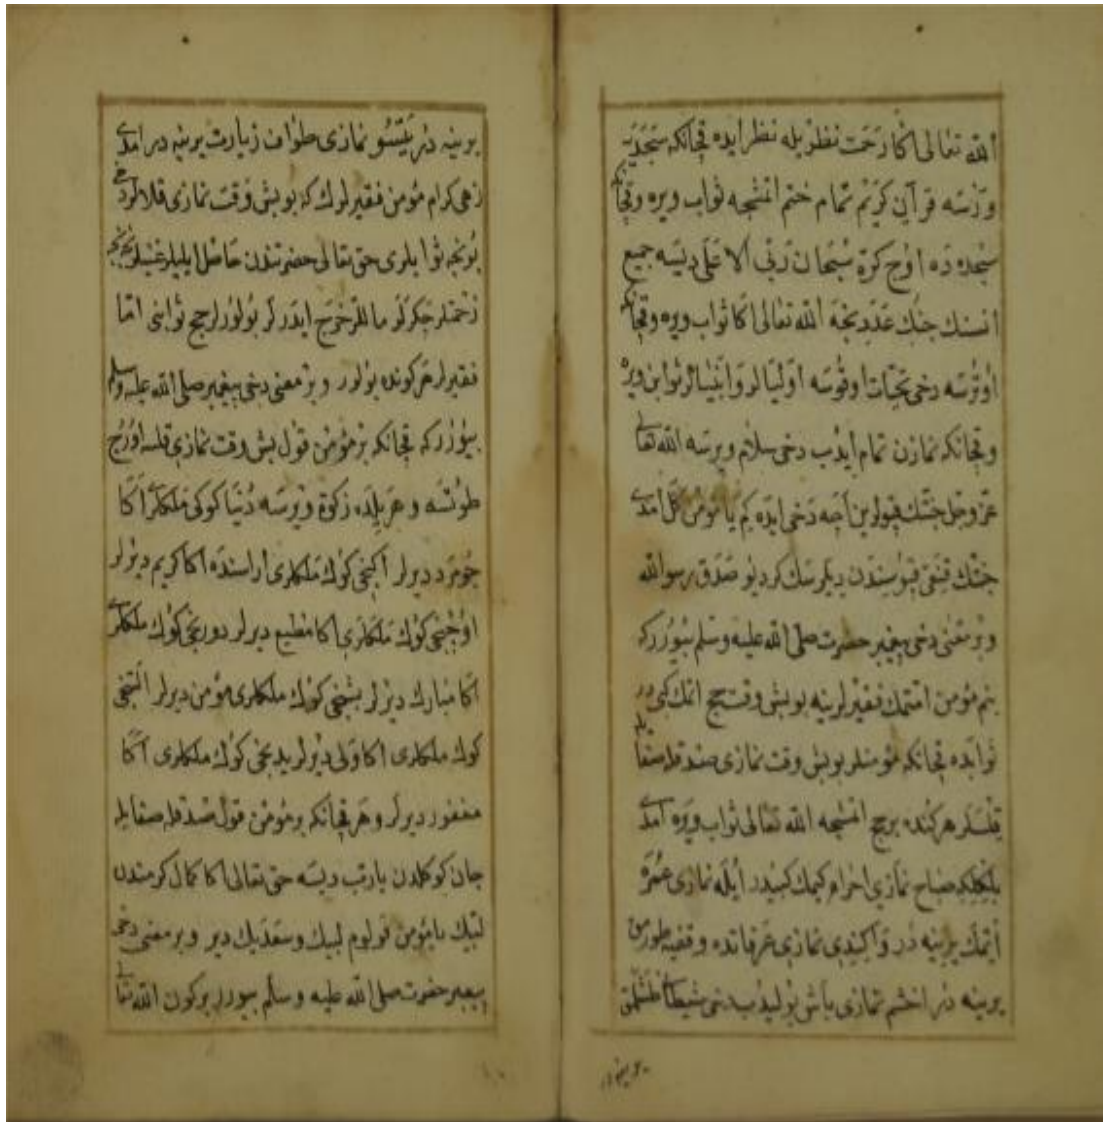 الله تعالى اكا رحمت نظريله نظر ايده قچانكه سجديه
وارسه قرآن كريم تمام ختم اتمشجه ثواب ويره وقچانكه
سجده ده اوچ كره سبحان ربي الاعلى ديسه جميع
انسك جنك عددنجه الله تعالى اكا ثواب ويره وقچانكه
اوتورسه دخى تحيات اوقوسه اوليالر وانبيالر ثوابن ويره
وقچانكه نمازن تمام ايدب دخى سلام ويرسه الله تعالى
عز وجل جنتك قپولرين آچه دخى ايده كم يا مؤمن كل امدى
جنتك قنقى قپوسندن ديلرسك كر ديو صدق رسول الله
وبر معنى دخى پيغمبر حضرت صلى الله عليه وسلم بيورر كه
بنم مؤمن امتمك فقيرلرينه بو بش وقت حج اتمك كبى در
ثوابده قچانكه مؤمنلر بو بش وقت نمازى صدقله صفايله
قلسلر هر كنده بر حج اتمشجه الله تعالى ثواب ويره امدى
بلكلكه صباح نمازى احرام كيمك كبيدر ايله نمازى عمره
اتمك يرينه در واكيندى نمازى عرفاتده وقفيه طورمق
يرينه در اخشم نمازى باش يوليدب دخى شيطان طشلمق
يرينه در يتسو نمازى طواف زيارت يرينه در امدى
زهى كرام مؤمن فقيرلرك كه بو بش وقت نمازى قلالر دخى
بونجه ثوابلرى حق تعالى حضرتندن حاصل ايليلر غنيلر نجه نجه
زحمتلر چكرلر ماللر خرج ايدرلر بولورلر حج ثوابنى اما
فقيرلر هر كونده بولور وبر معنى دخى پيغمبر صلى الله عليه وسلم
بيورر كه قچانكه بر مؤمن قول بش وقت نمازى قلسه اوروج
طوتسه وهر يلده زكوة ويرسه دنيا كوكى ملكلرى اكا
جومرد ديرلر اكنجى كوك ملكلرى اراسنده اكا كريم ديرلر
اوچنجى كوك ملكلرى اكا مطيع ديرلر دوردنجى كوك ملكلرى
اكا مبارك ديرلر بشنجى كوك ملكلرى مؤمن ديرلر التنجى
كوك ملكلرى اكا ولى ديرلر يدنجى كوك ملكلرى اكا
مغفور ديرلر وهر قچانكه بر مؤمن قول صدقله صفايله
جان كوكلدن يا رب ديسه حق تعالى اكا كمال كرمندن
لبيك يا مؤمن قولوم لبيك وسعديك دير وبر معنى دخى
پيغمبر حضرت صلى الله عليه وسلم بيورر بر كون الله تعالى